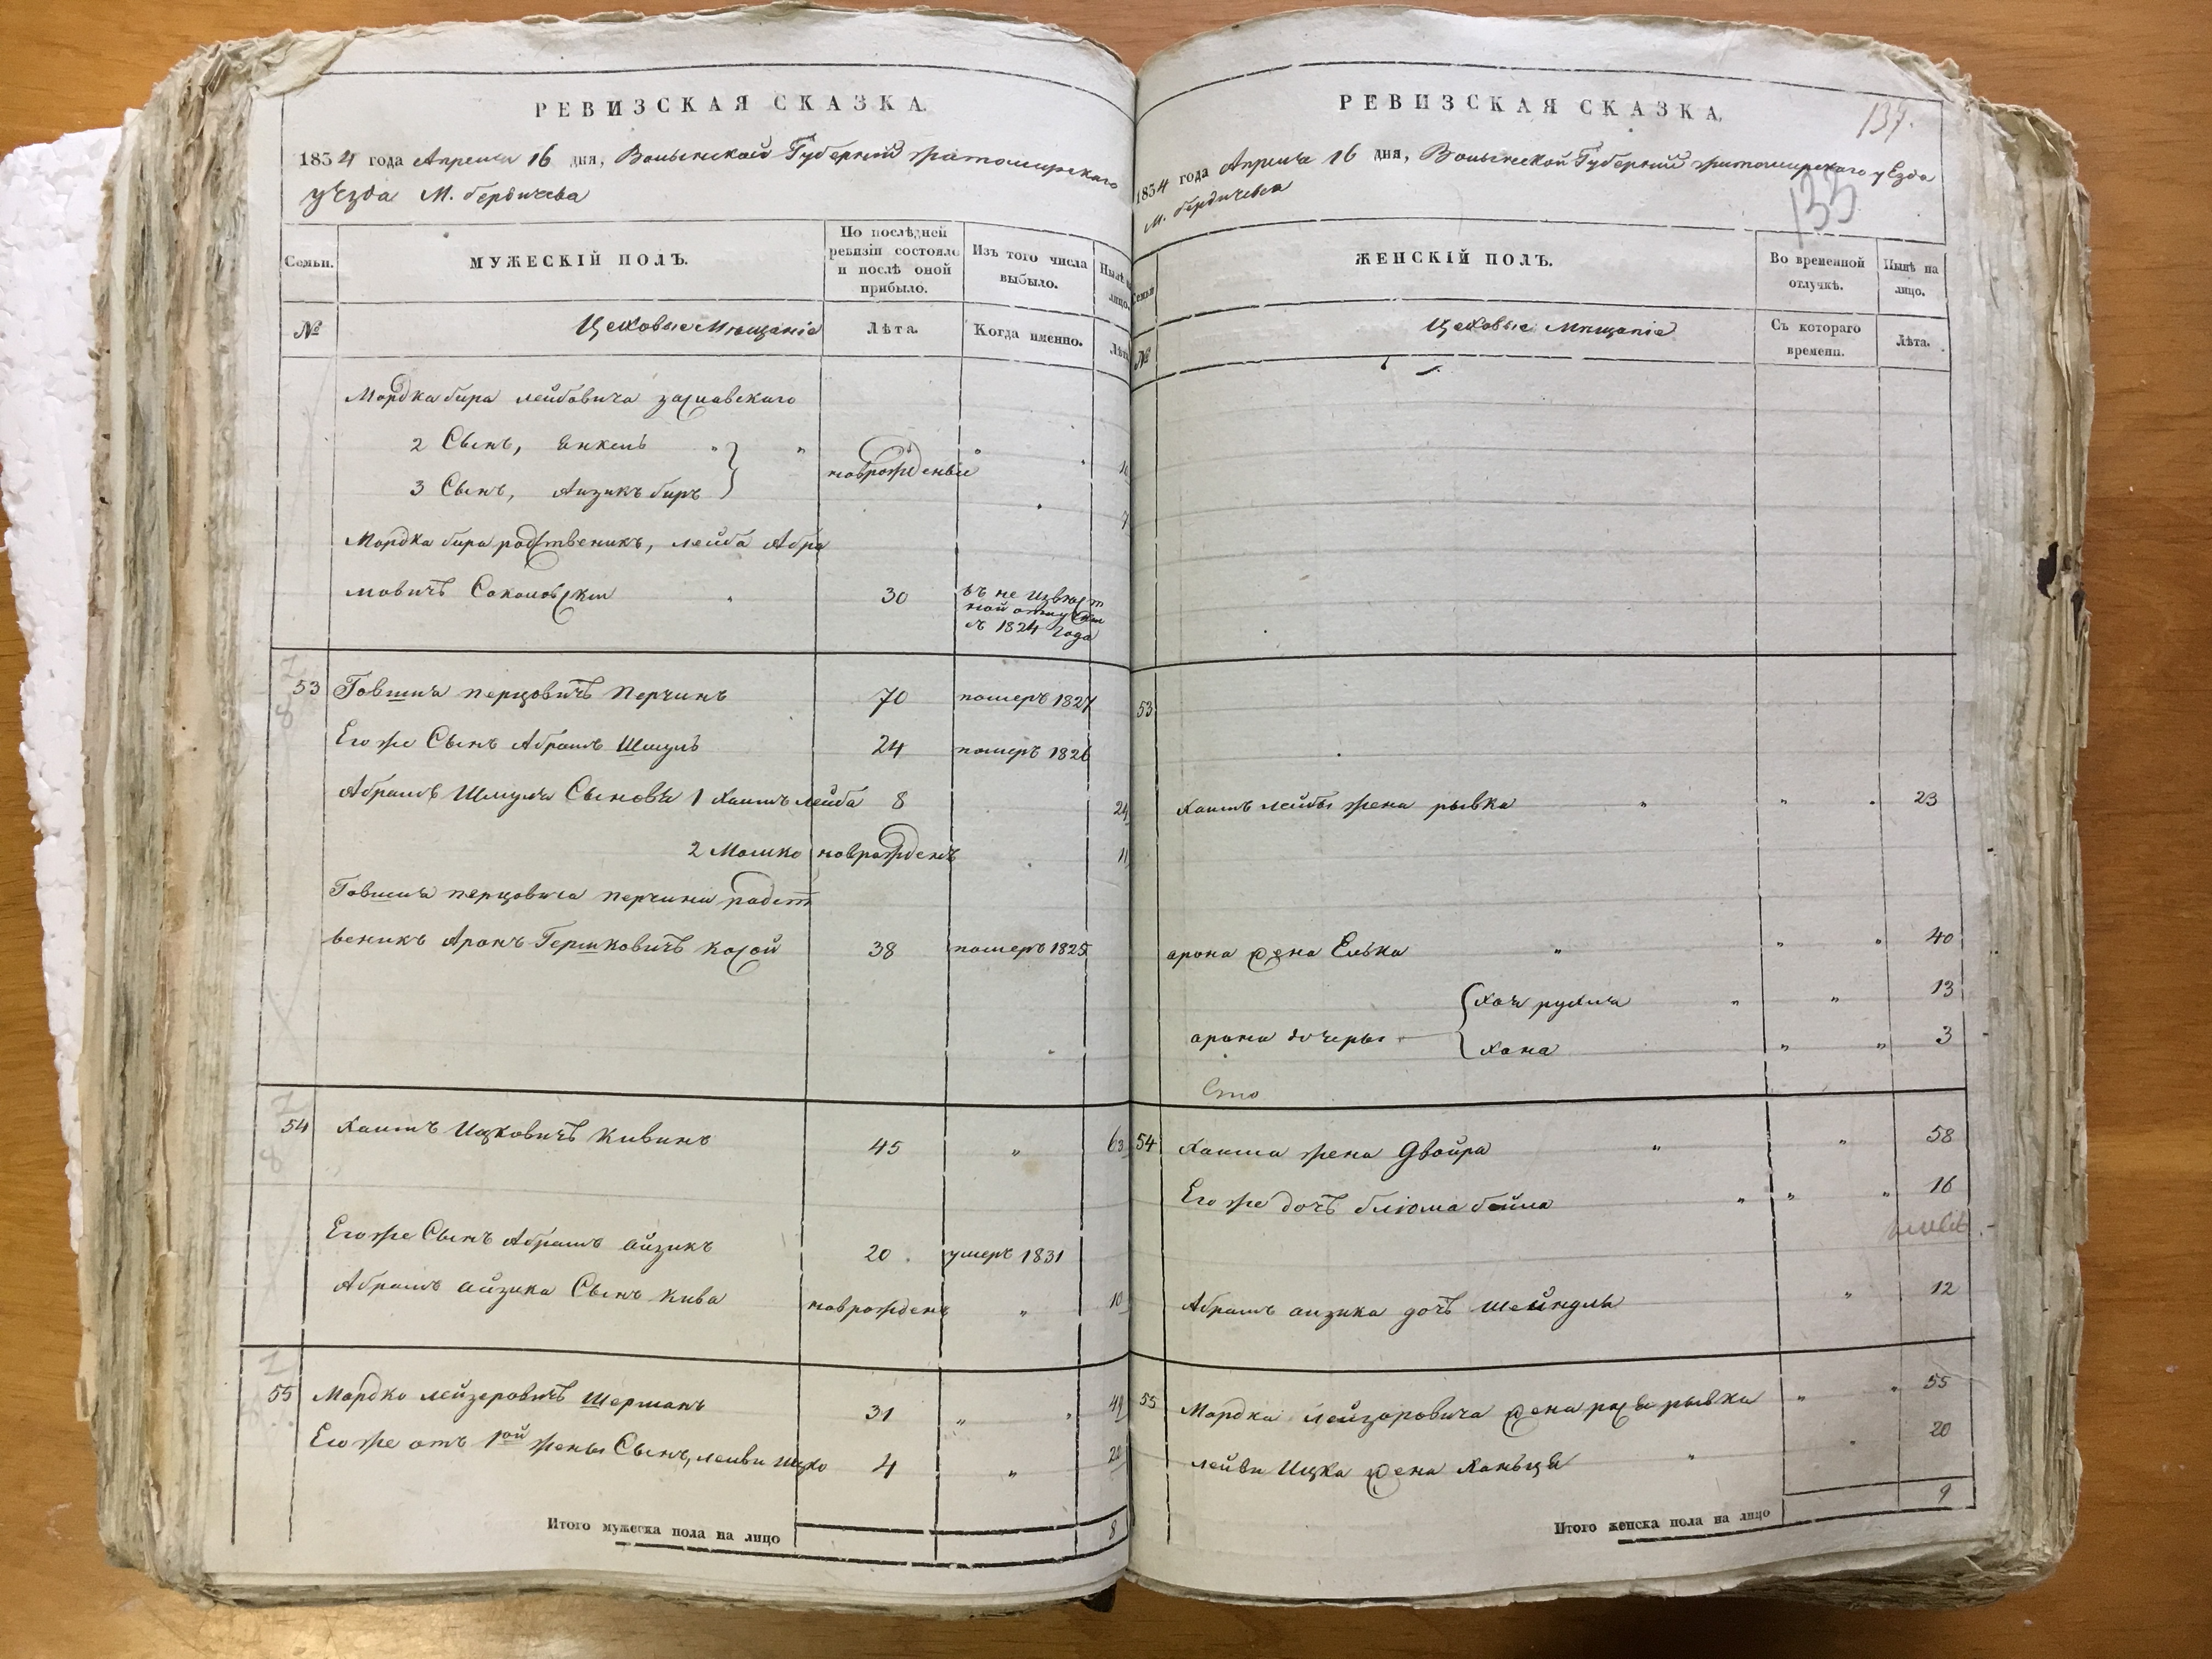 РЕВИЗСКАЯ СКАЗКА.
1834 года Апреля 16 дня, Волынской Губернии Житомирского
уезда М. бердичева
Семьи.
МУЖЕСКІЙ ПОЛЪ.
По послѣдней ревизіи состояло и послѣ оной прибыло.
Изъ того числа выбыло.
Нынѣ на лицо.
№
Цеховые Мещание
Лѣта.
Когда именно.
Лѣта
Мордка бира лейбовича заславского
2 Сынъ, Янкель " "
3 Сынъ, Аизикъ биръ
новрожденые
Мордка бира родственикъ, лейба Абра
мовичъ Соколовски 30 въ не извест
ной отлучки
съ 1824 года
53 Товшия перцовичъ Перчинъ 70 померъ 1827
Его же Сынъ Абрамъ Шмуль 24 померъ 1826
Абрамъ Шмуля Сыновя 1 Хаимъ лейба 8 24
2 Мошко новрожденъ 11
Товшия перцовича перчина родст
веникъ Аронъ Гершковичъ косой 38 померъ 1825
54 Хаимъ Ицковичъ Кивинъ 45 " 63
Его же Сынъ Абрамъ айзикъ 20 умеръ 1831
Абрамъ айзика Сынъ Кива новрожденъ " 10
55 Мордко лейзеровичъ Шерманъ 31 " "
Его же отъ 1ой жены Сынъ, леиви Ицко 4 "
Итого мужеска пола на лицо 8
РЕВИЗСКАЯ СКАЗКА.
137.
133
1834 года Апреля 16 дня, Волынской Губернии Житомирского уезда
М. бердичева
Семьи
ЖЕНСКІЙ ПОЛЪ.
Во временной отлучкѣ.
Нынѣ на лицо.
№
Цеховые Мещание
Съ котораго времени.
Лѣта.
53
Хаимъ лейбы жена рывка " " 23
арона жена Елька " " " 40
арона дочеры
Хая рухля " " 13
Хана " " 3
54 Хаима жена Двойра " " 58
Его же дочъ блюма бейла " " " 16
Абрамъ аизика дочъ шейндля " 12
55 Мордка лейзоровича жена рися рывка " " 55
лейви Ицка жена Ханьця " " 20
Итого женска пола на лицо 9